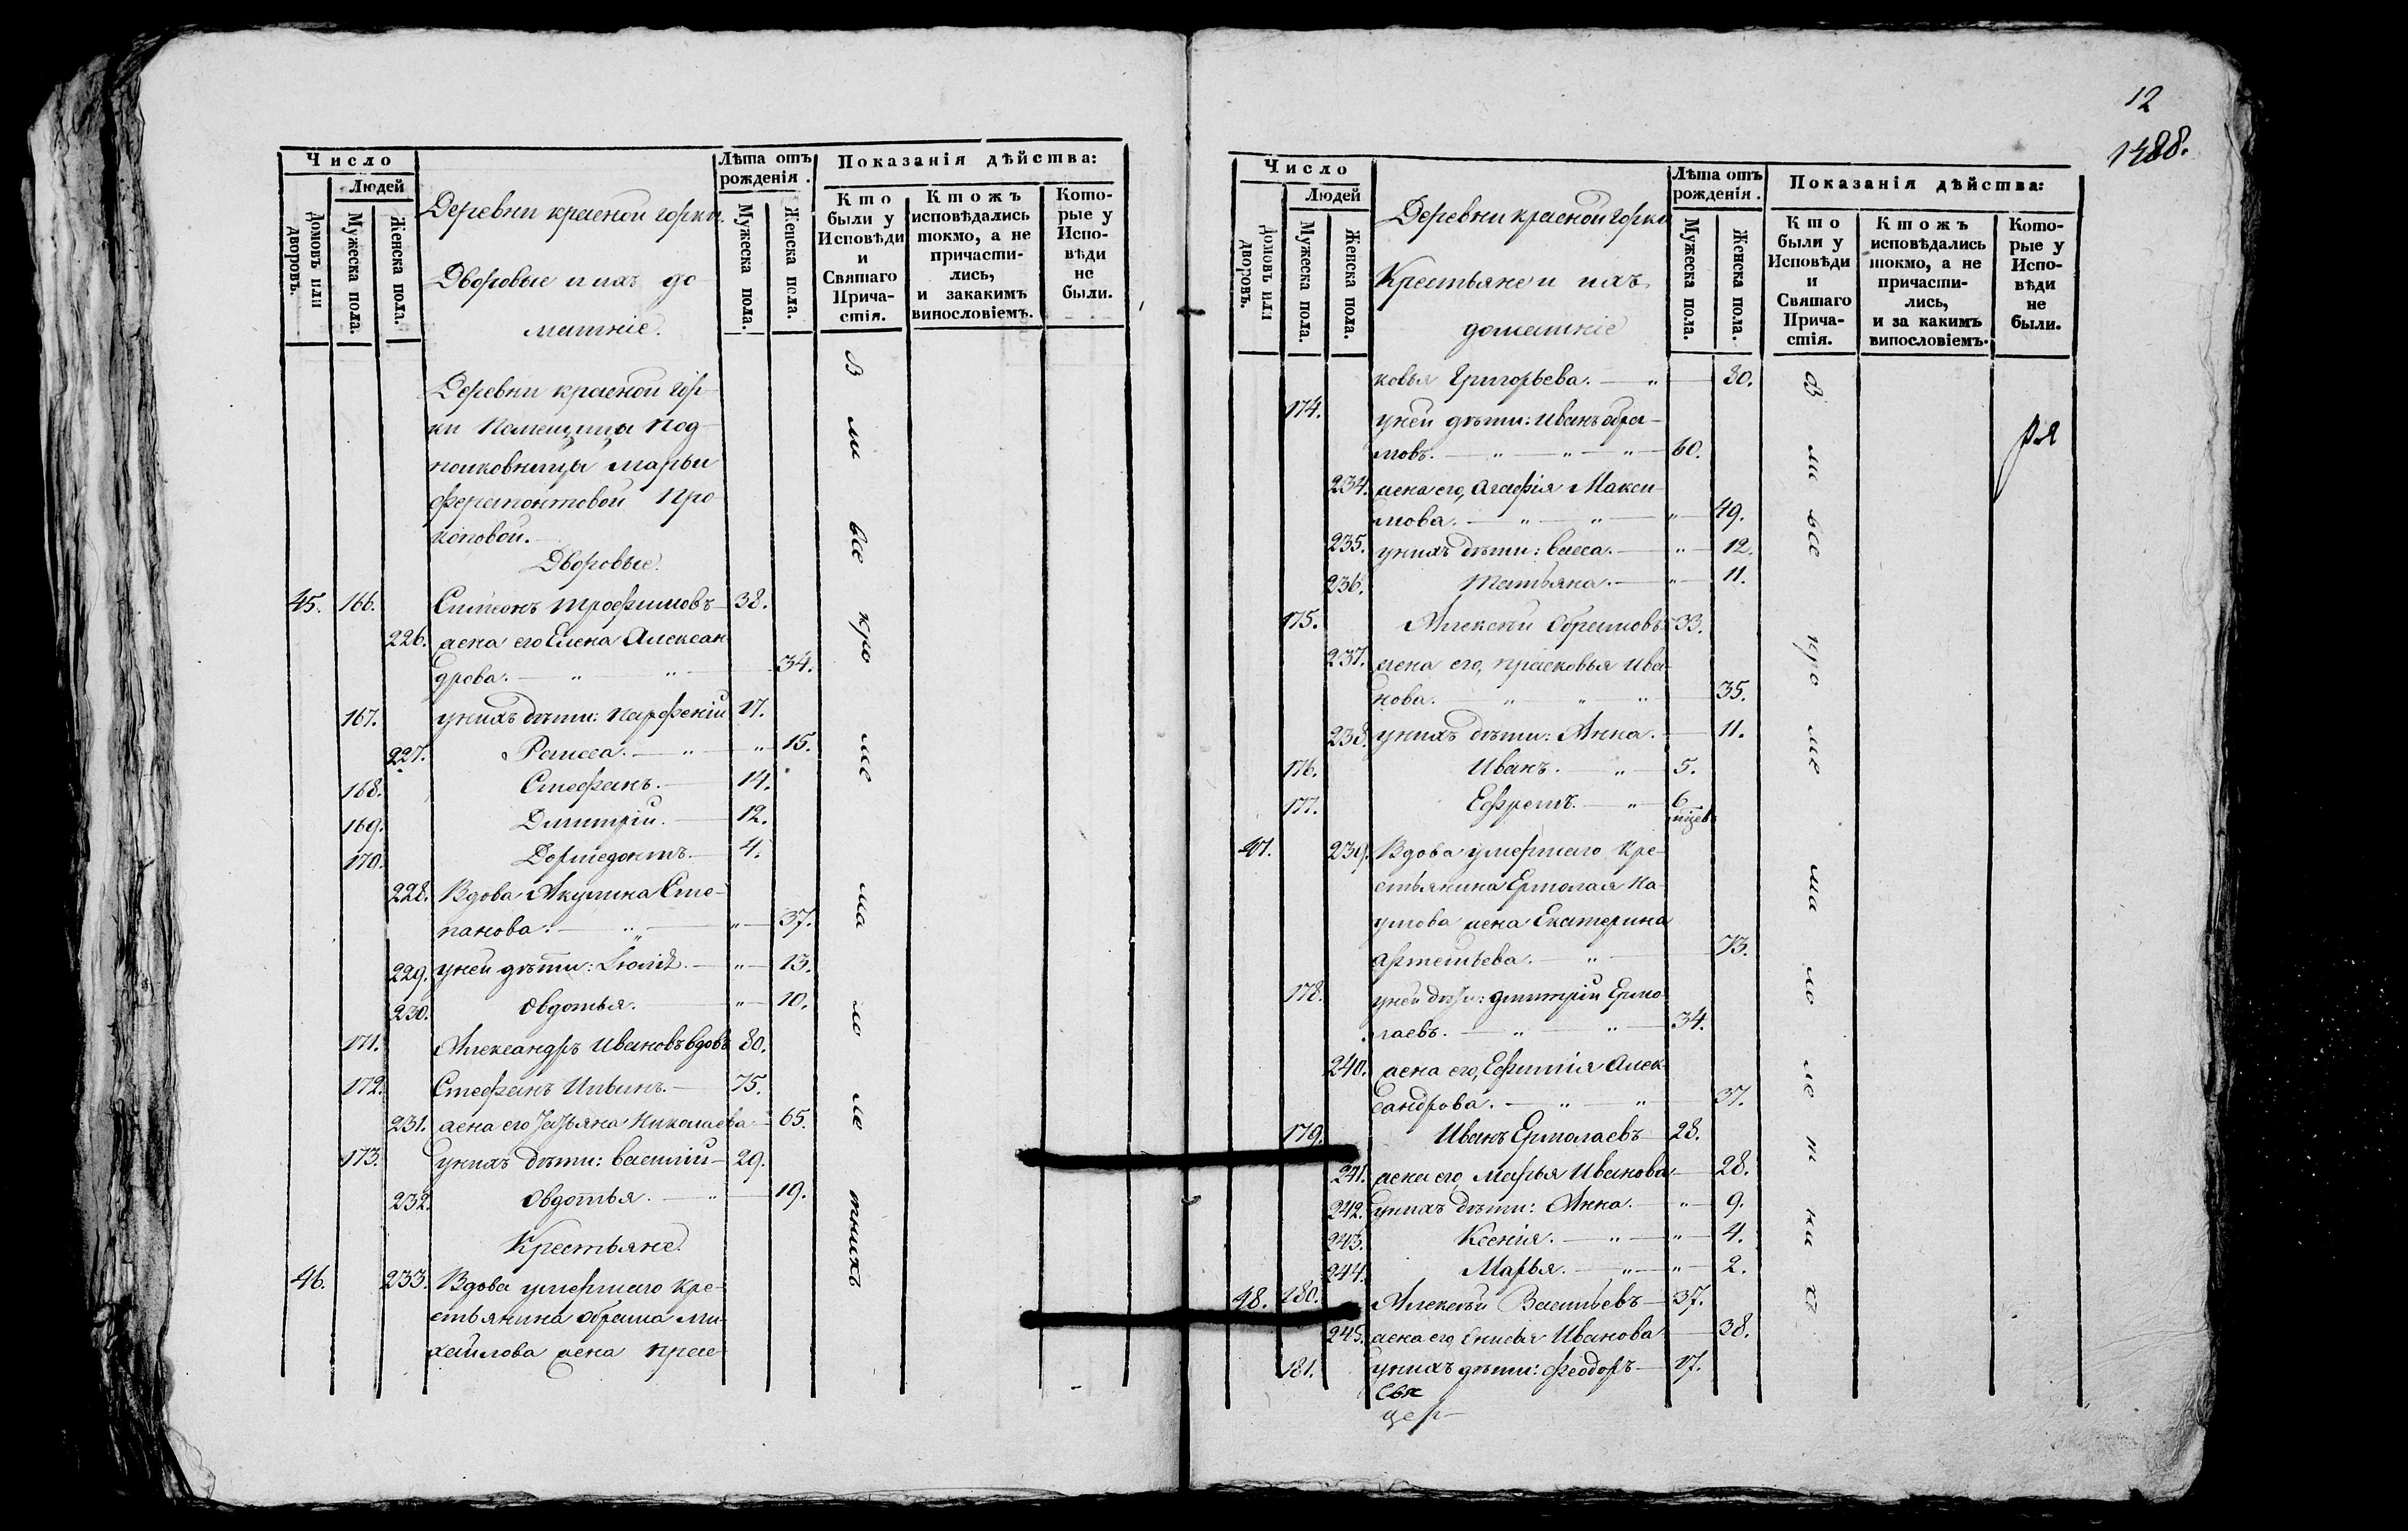 Число
Людей
Домовъ или дворовъ.
Мужеска пола.
Женска пола.
Деревни красной горки.
Дворовые и ихъ до
машніе.
Лѣта отъ рожденія.
Мужеска пола.
Женска пола.
Показанія дѣйства:
Кто были у Исповѣди и Святаго Причастія.
Ктожъ исповѣдались токмо, а не причастились, и закакимъ винословіемъ.
Которые у Исповѣди не были.
Деревни красной гор-
ки Помещицы Под-
полковницы марьи
ферапонтовой Про
коповой.
Дворовые.
45. 166. Симеонъ трофимовъ 38.
226. жена его Елена Алексан
дрова. 34.
167. унихъ дѣти: Парфеній 17.
227. Раиса. 15.
168. Стефанъ. 14.
169. Димитрій. 12.
170. Дормедонтъ. 4.
228. Вдова Акулина Сте-
панова. 37.
229. уней дѣти: 13.
230. Овдотья. 10.
171. Александръ Ивановъ вдовъ 80.
172. Стефанъ Ильинъ. 75.
231. жена его Татьяна Николаева 65.
173. унихъ дѣти: василій 29.
232. Овдотья. 19.
Крестьяне.
46. 233. Вдова умершаго кре-
стьянина абрама ми-
хайлова жена прас
12
1488.
Число
Людей
Домовъ или дворовъ.
Мужеска пола.
Женска пола.
Деревни красной горки
Крестьяне и ихъ
домашніе
Лѣта отъ рожденія.
Мужеска пола.
Женска пола.
Показанія дѣйства:
Кто были у Исповѣди и Святаго Причастія.
Ктожъ исповѣдались токмо, а не причастились, и за какимъ винословіемъ.
Которые у Исповѣди не были.
ковья Григорьева. 80.
174. уней дѣти: Иванъ абра-
мовъ. 60.
234. жена его, агафія Макси-
мова. 49.
235. унихъ дѣти: васса. 12.
236. Татьяна. 11.
175. Алексѣй Абрамовъ 33.
237. жена его, прасковья Ива-
нова. 35.
238. унихъ дѣти: Анна. 11.
176. Иванъ. 5.
177. Ефремъ. 6
47. 239. Вдова умершаго кре-
стьянина Ермолая На-
умова жена Екатерина
артемьева. 73.
178. уней дѣти: димитрій Ермо
лаевъ. 34.
240. жена его, Ефимія Алек
сандрова. 37.
179. Иванъ Ермолаевъ 28.
241. жена его, Марья Иванова 28.
242. унихъ дѣти: Анна. 9.
243. Ксенія. 4.
244. Марья. 2.
48. 180. Алексѣй Васильевъ 37.
245. жена его, Анисья Иванова 38.
181. унихъ дѣти: феодоръ 17.
Свя
цер